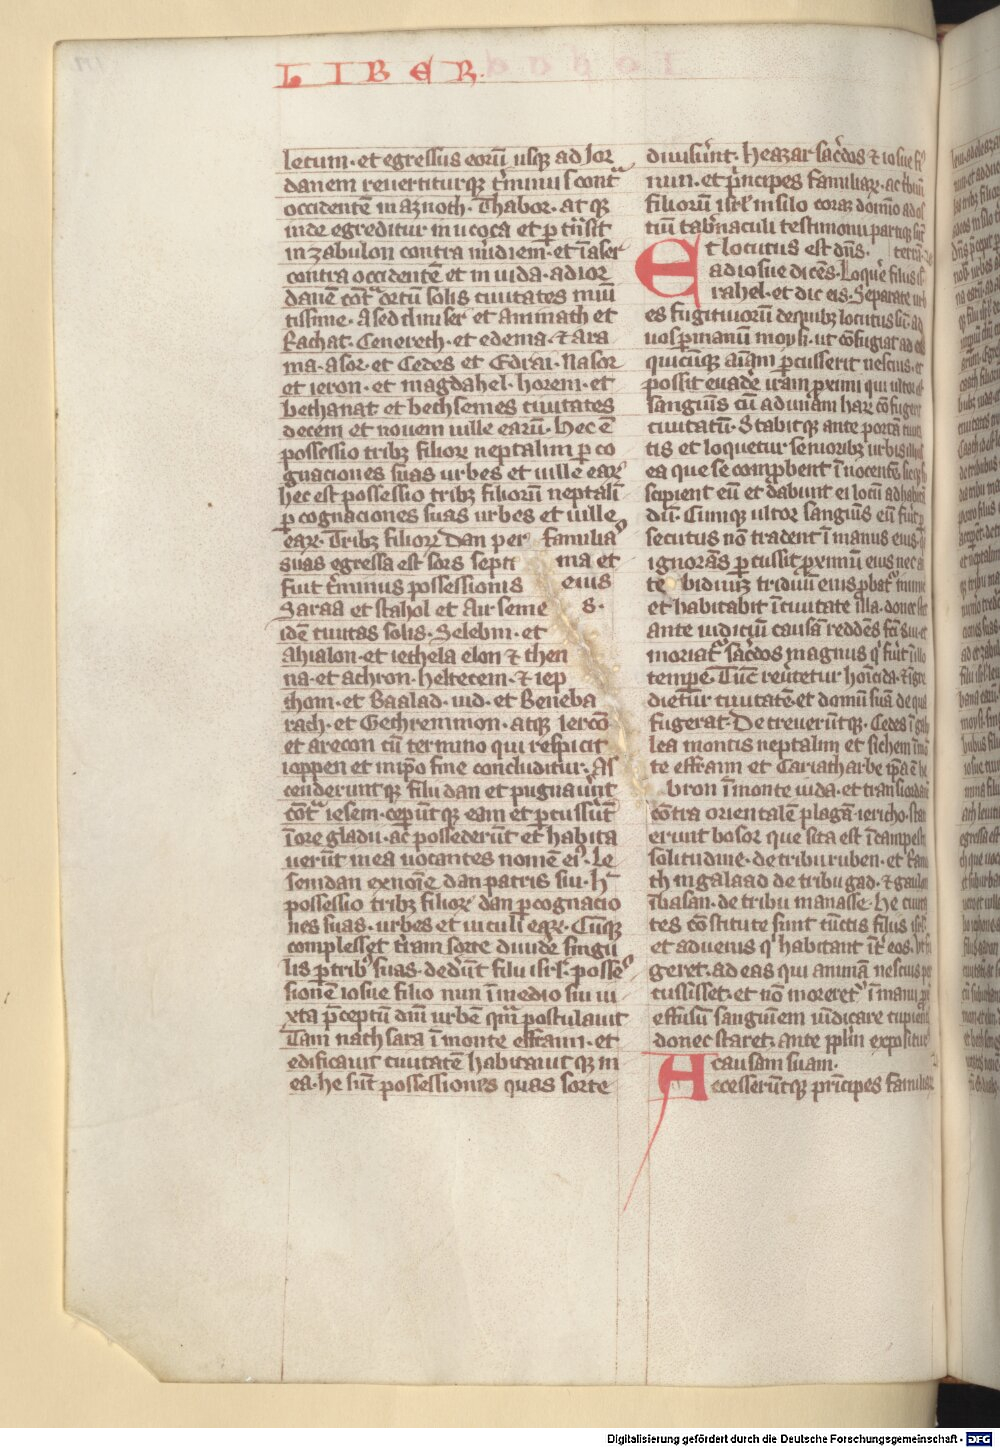 LIBER
letum · et egressus eorū usqꝫ ad Jor
danem reuertiturqꝫ t̄minus contᵃ
occidentē in aznoth · Thabor · at qꝫ
inde egreditur in ucoca et ꝑ t̄nsit
in zabulon contra m̄idiem · et ī aser
contra occidentē et in iuda · ad ior
danē cōtᵃ ortū solis ciuitates muni
tissime · Aseddim ser et ammath et
Rachat · Cenereth · et edema · ⁊ ara
ma · asor · et Cedes et Edrai · Nasor
et ieron · et magdahel · horem · et
bethanat · et bethsemes ciuitates
decem et nouem uille earū · hec ē
possessio tribꝫ filioꝝ neptalim ꝑ co
gnaciones suas urbes et uille eaꝝ
hec est possessio tribꝫ filiorū neptalī
ꝑ cognaciones suas urbes et uille
eaꝝ · Tribꝫ filioꝝ Dan per familias
suas egressa est sors septi ma et
fuit t̄minus possessionis eius
Saraa et stahol et Air seme s ·
idē ciuitas solis · Selebin · et
Ahialon · et iethela elon ⁊ then
na · et achron · heltecem · ⁊ iep
thom · et Baalad · iud · et Beneba
rach · et Gethremmon · atqꝫ iercō
et arecon cū termino qui respicit
ioppen et in ip̄o fine concluditur · As
cenderuntqꝫ filii dan et pugnauūt
cōtᵃ iesem · ceperūtqꝫ eam et ꝑcusserūt
ī ore gladii · ac possederūt et habita
uerūt in ea uocantes nomē eiꝰ · Le
semdan ex noīe dan patris sui · h̄
possessio tribꝫ filioꝝ dan ꝑ cognacio
nes suas · urbes et uiculi eaꝝ · Cūqꝫ
complesset t̄ram sorte diuide singu
lis ꝑ tribꝰ suas · dederūt filii isrl̄ · posses
sionē iosue filio nun ī medio sui iu
xta p̄ceptū dn̄i urbē quā postulauit
Tam nath sara ī monte effraim · et
edificauit ciuitatē habitauitqꝫ in
ea · he sūt possessiones quas sorte
diuiserūt · heazar sac̄dos ⁊ iosue fiꝰ
nun · et p̄ncipes familiaꝝ · ac tribuū
filiorū isrl̄ in silo corā domīo ad os
tiū tab̄naculi testimonii
Et locutus est dn̄s · terrā
ad iosue dicēs · Loquere filiis is
rahel · et dic eis · Separate urb
es fugitiuorū de quibꝫ locutus sū ad
uos ꝑ manū moysi · ut cōfugiat ad eas
quicūqꝫ aīam ꝑcusserit nescius · et
possit euadē iram ꝓximi qui ultor est
sanguīs cū ad unam haꝝ cōfugerit
ciuitatū · Stabitqꝫ ante portā ciuita
tis et loquetur senioribꝫ urbis illius
ea que se comꝓbent īnocentē sicqꝫ
scipient eū et dabunt ei locū ad habitan
dū · Cumqꝫ ultor sanguīs eū fuerit ꝑ
secutus nō tradent ī manus eius · qꝫ
ignorās ꝑcussit ꝓximū eius nec an
te biduū triduū eius ꝓbat͛ inimicus
et habitabit ī ciuitate illa · donec stet
ante iudiciū causā reddēs fc̄i sui · et
moriat͛ sac̄dos magnus qͥ fuerit ī illo
tempe · Tūc reūtetur homicida · ⁊ īgre
dietur ciuitatē · et domū suā de qua
fugerat · De creuerūtqꝫ · Cedes ī gali
lea montis neptalim et sichem ī mō
te effraim et Cariatharbe ip̄a ē he
bron ī monte iuda · et trans iordanē
cōtra orientalē plagā iericho · stat
erunt bosor que sita est ī campestri
solitudine · de tribu ruben · et Ramo
th in galaad de tribu gad · ⁊ gaulon
ī basan · de tribu manasse · he ciuita
tes cōstitute sunt cūctis filiis isrl̄ ·
et aduenis qͥ habitant īt̄ eos · ut fu
geret · ad eas qui animā nescius ꝑ
cussisset · et nō moreret͛ ī manu ꝓxi
effusū sanguīem uīdicare cupientis
donec staret · ante ppl̄m expositurꝰ
causam suam ·
Accesserūtqꝫ prīcipes familiaꝝ
Digitalisierung gefördert durch die Deutsche Forschungsgemeinschaft - DFG